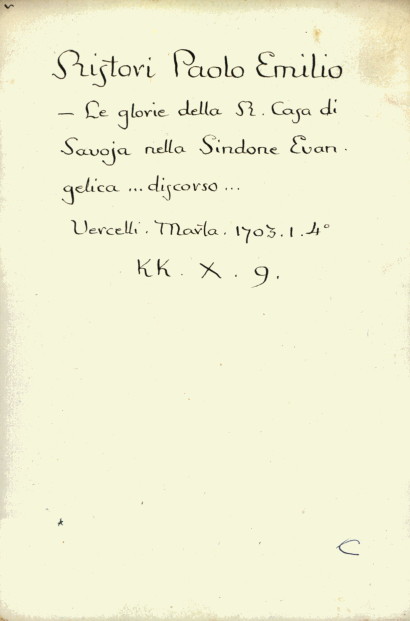 Ristori Paolo Emilio
– Le glorie della R. Casa di
Savoja nella Sindone Evan.
gelica ... discorso ...
Vercelli. Marta. 1703. 1. 4°
KK. X. 9.
*
C